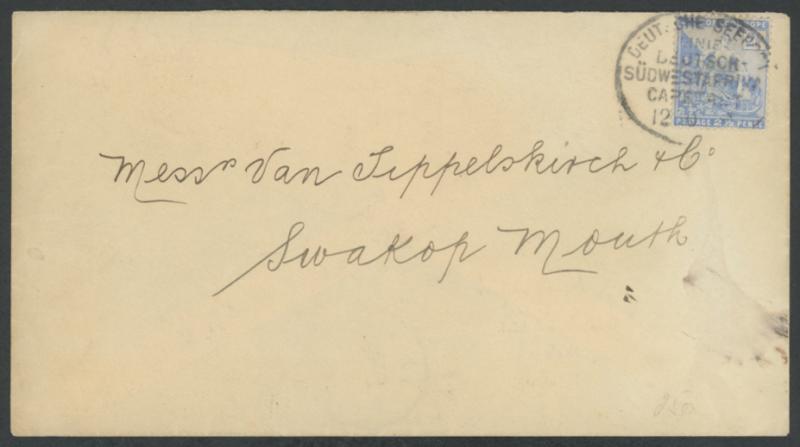 DEUTSCHE SEEPOST
LINIE
DEUTSCH-
SÜDWESTAFRIKA
12
OF
POSTAGE 2½ PENCE
Messrs Van Tippelskirch & Co
Swakop Mouth